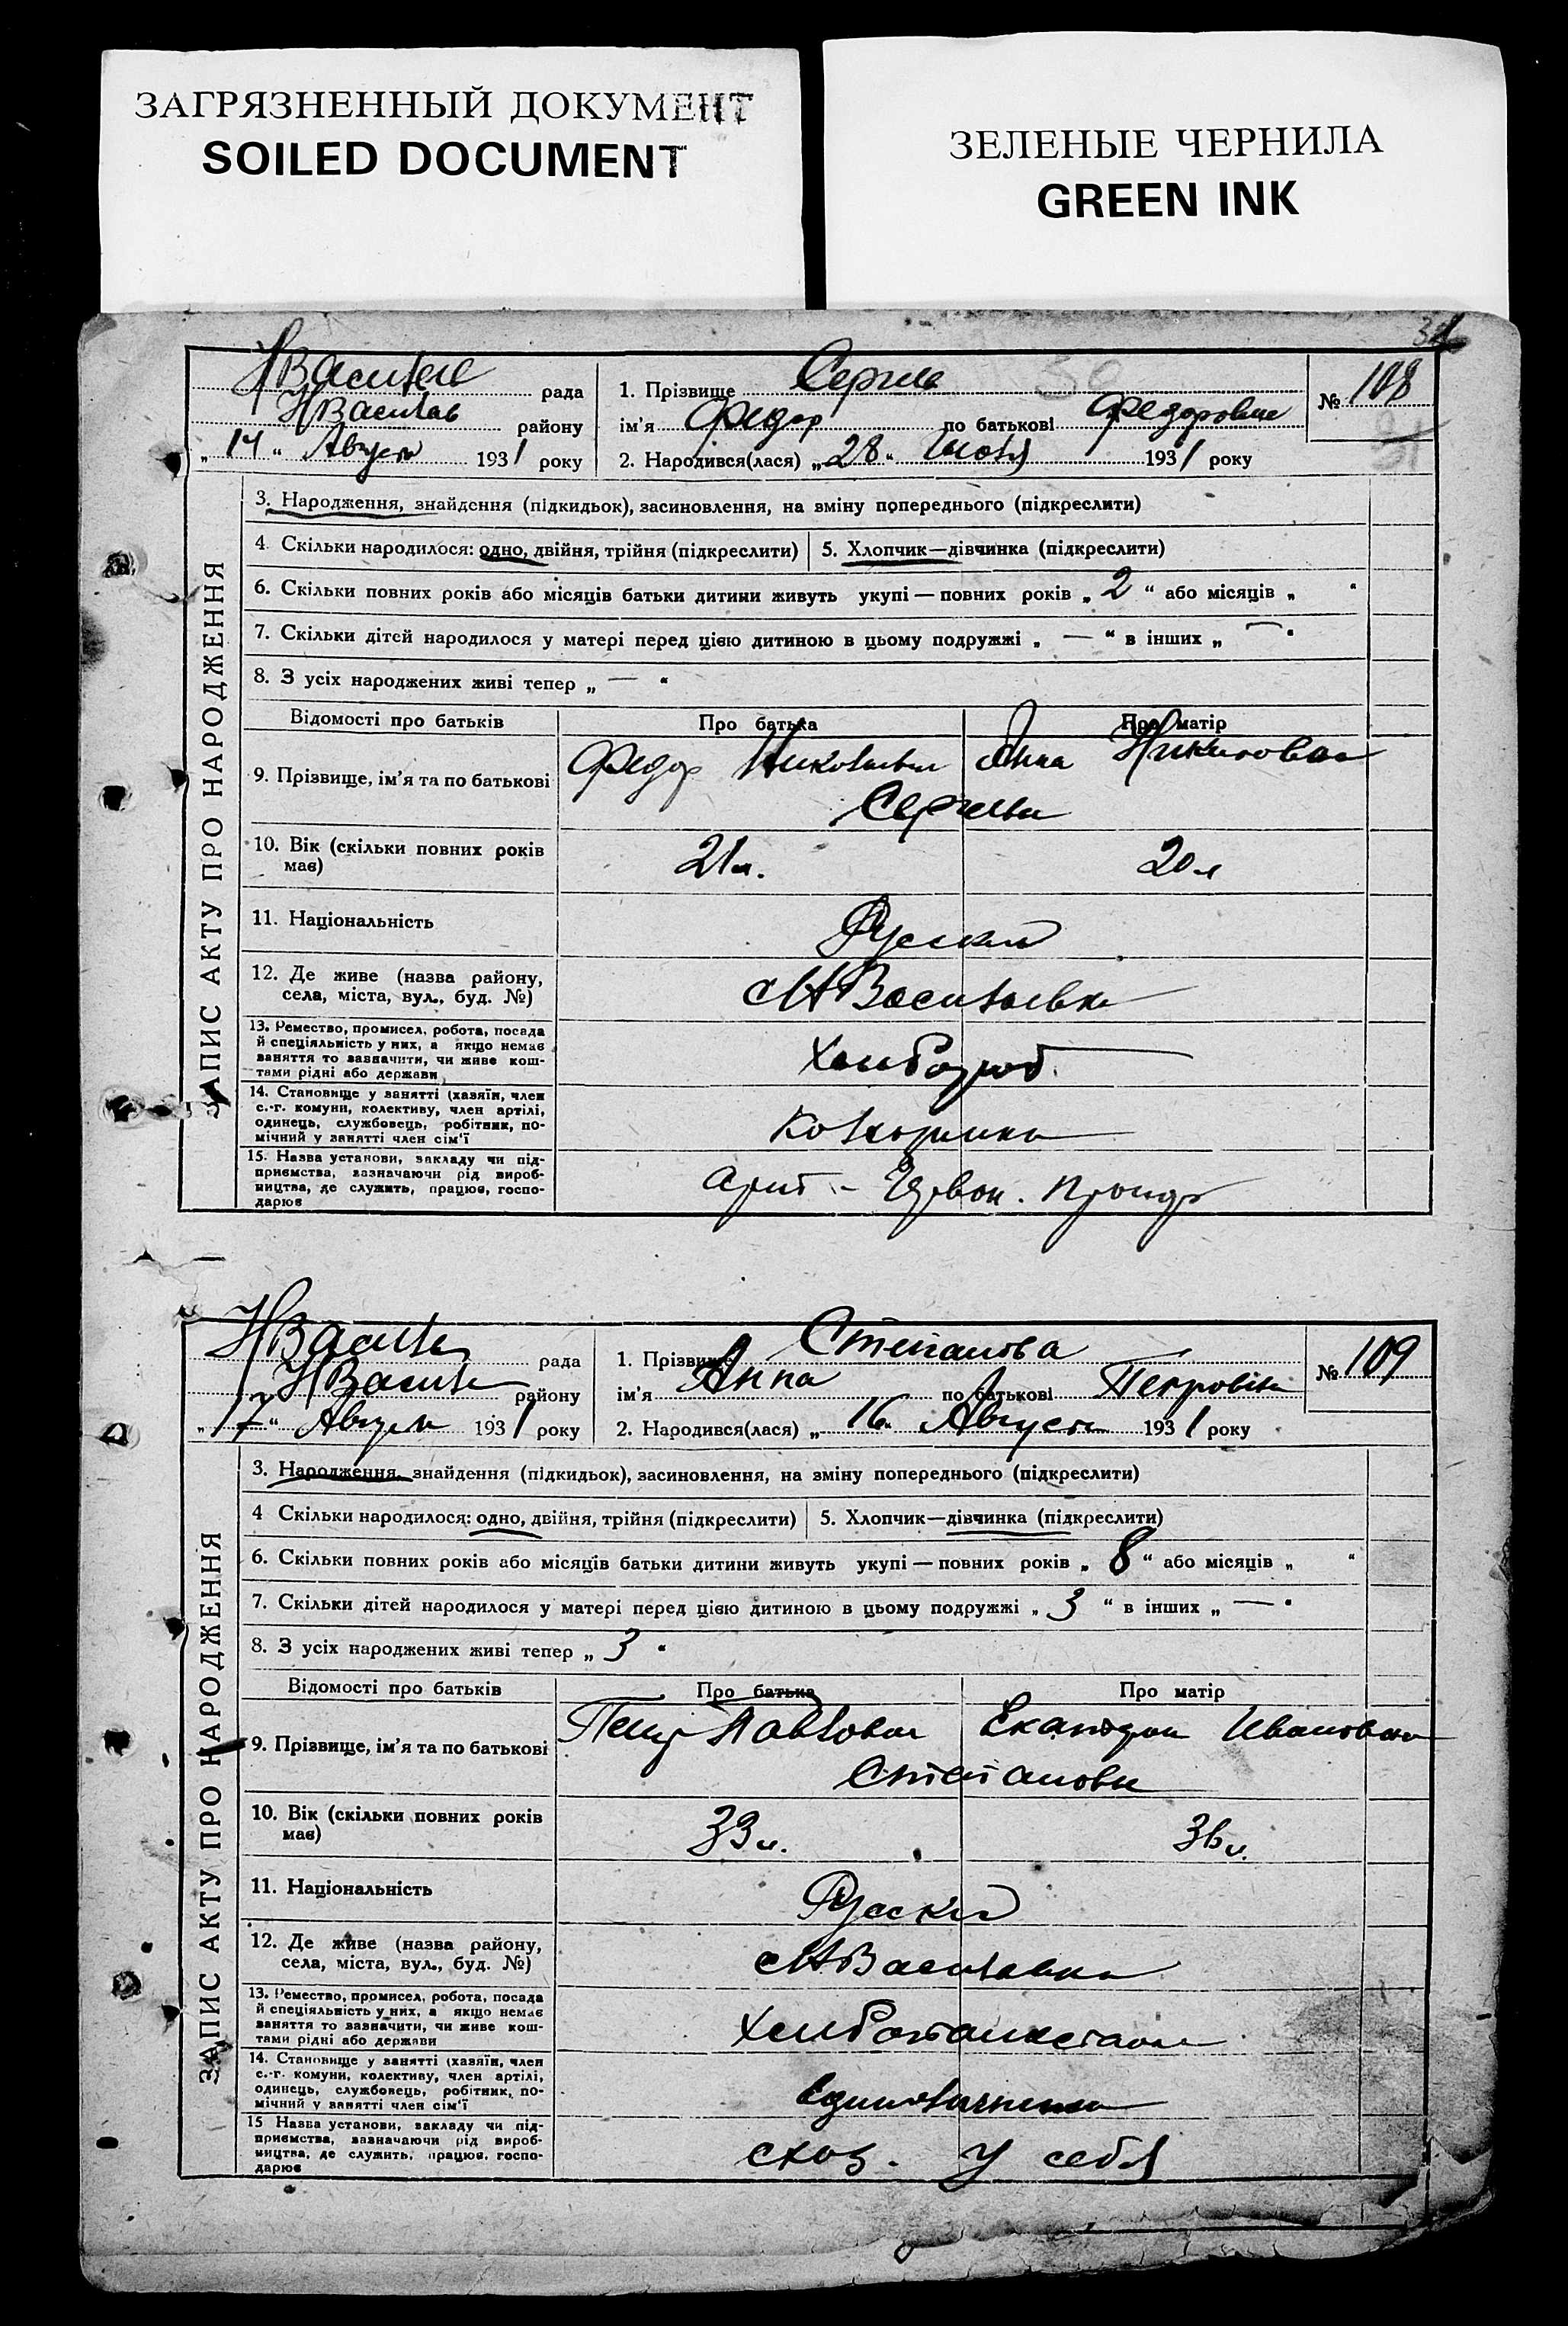 ЗАГРЯЗНЕННЫЙ ДОКУМЕНТ
SOILED DOCUMENT
ЗЕЛЕНЫЕ ЧЕРНИЛА
GREEN INK
ЗАПИС АКТУ ПРО НАРОДЖЕННЯ
рада
району
„14“ Август 1931 року
1. Прізвище
ім'я Федор по батькові Федорович
2. Народився(лася) „28“ Июля 1931 року
№ 108
3. Народження, знайдення (підкидьок), засиновлення, на зміну попереднього (підкреслити)
4. Скільки народилося: одно, двійня, трійня (підкреслити) 5. Хлопчик—дівчинка (підкреслити)
6. Скільки повних років або місяців батьки дитини живуть укупі — повних років „2“ або місяців „ “
7. Скільки дітей народилося у матері перед цією дитиною в цьому подружжі „ — “ в інших „ — “
8. З усіх народжених живі тепер „ — “
Відомості про батьків Про батька Про матір
9. Прізвище, ім'я та по батькові Федор Анна
10. Вік (скільки повних років має) 21 л. 20 л
11. Національність Русские
12. Де живе (назва району, села, міста, вул., буд. №) Н Васильевка
13. Ремество, промисел, робота, посада й спеціяльність у них, а якщо немає заняття то зазначити, чи живе коштами рідні або держави
14. Становище у занятті (хазяїн, член с.-г. комуни, колективу, член артілі, одинець, службовець, робітник, помічний у занятті член сім'ї
15. Назва установи, закладу чи підприємства, зазначаючи рід виробництва, де служить, працює, господарює
ЗАПИС АКТУ ПРО НАРОДЖЕННЯ
рада
району
„17“ Август 1931 року
1. Прізвище Степанова
ім'я Анна по батькові Петровна
2. Народився(лася) „16“ Август 1931 року
№ 109
3. Народження, знайдення (підкидьок), засиновлення, на зміну попереднього (підкреслити)
4 Скільки народилося: одно, двійня, трійня (підкреслити) 5. Хлопчик—дівчинка (підкреслити)
6. Скільки повних років або місяців батьки дитини живуть укупі — повних років „8“ або місяців „ “
7. Скільки дітей народилося у матері перед цією дитиною в цьому подружжі „3“ в інших „ — “
8. З усіх народжених живі тепер „3“
Відомості про батьків Про батька Про матір
9. Прізвище, ім'я та по батькові Петр Павлович Ивановна
Степановы
10. Вік (скільки повних років має) 33 л. 36 л.
11. Національність Русские
12. Де живе (назва району, села, міста, вул., буд. №) Н Васильевка
13. Ремество, промисел, робота, посада й спеціяльність у них, а якщо немає заняття то зазначити, чи живе коштами рідні або держави
14. Становище у занятті (хазяїн, член с.-г. комуни, колективу, член артілі, одинець, службовець, робітник, помічний у занятті член сім'ї
15 Назва установи, закладу чи підприємства, зазначаючи рід виробництва, де служить, працює, господарює у себя